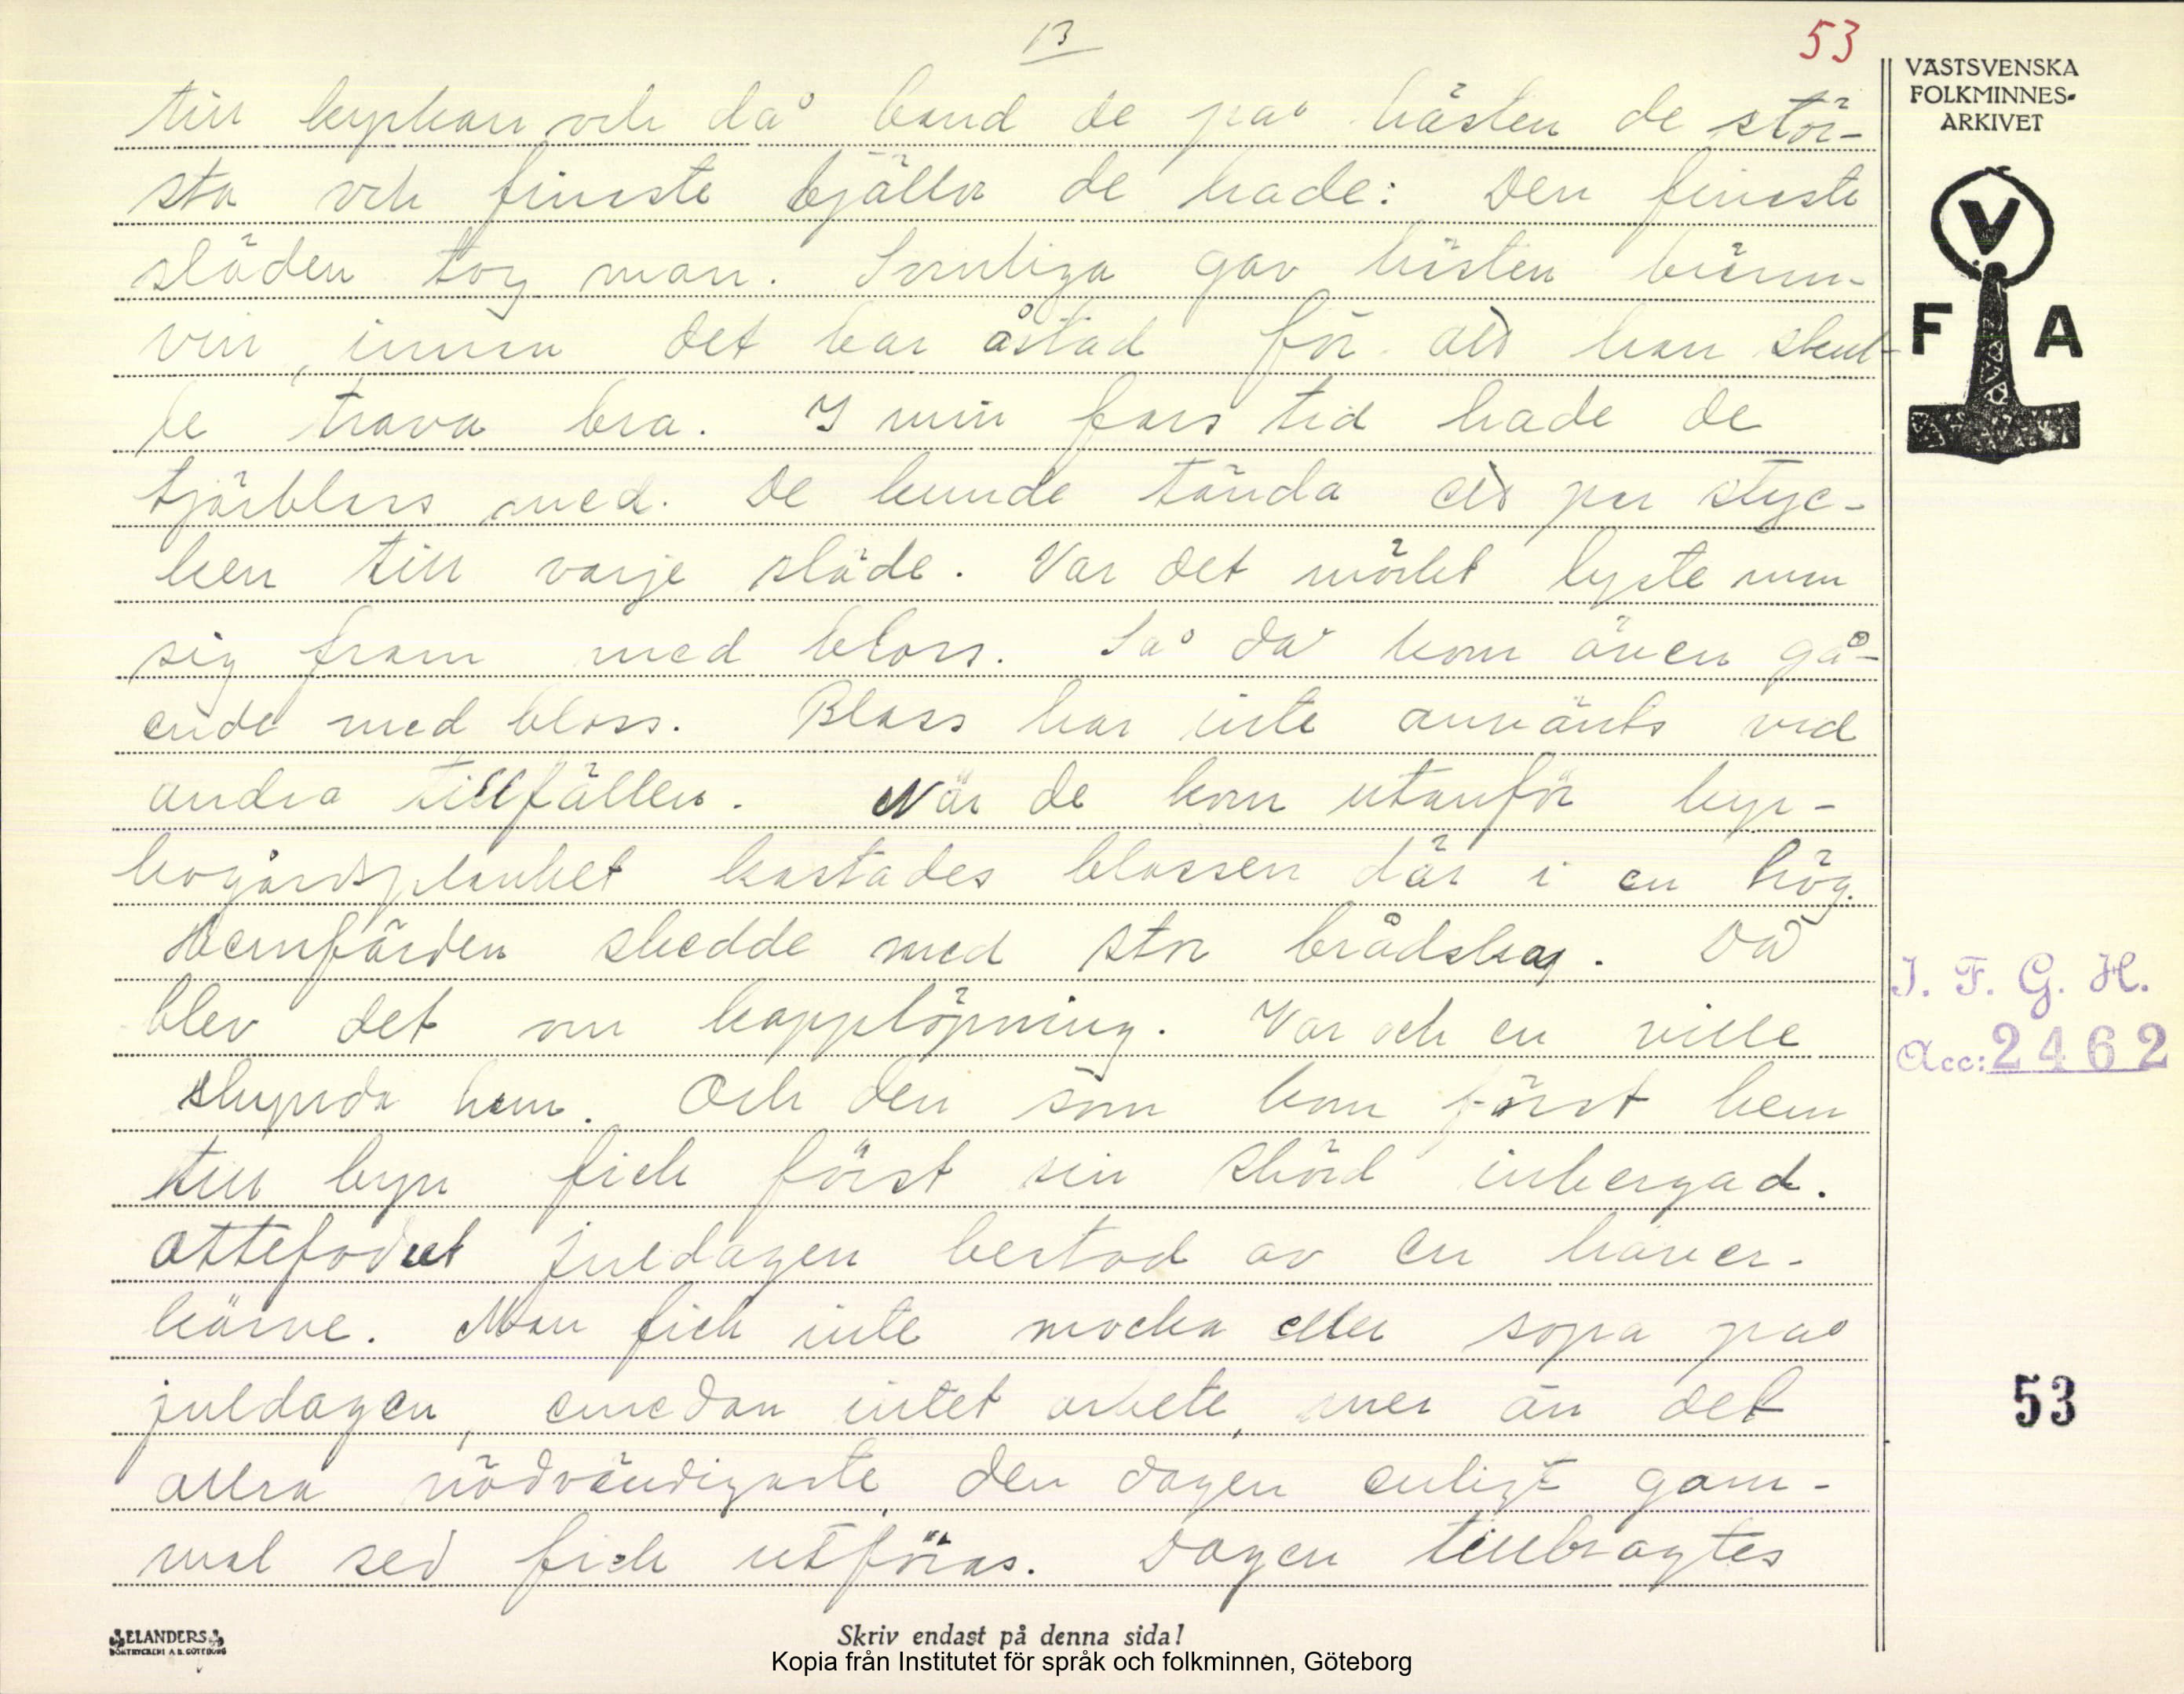 13
53
VÄSTSVENSKA
FOLKMINNES-
ARKIVET
V
F A
till kyrkan och då band de på hästen de stör-
sta och finaste bjällr de hade: Den finaste
släden tog man. Somliga gav hästen bränn-
vin, innan det bar åstad för att han skul-
le trava bra. I min fars tid hade de
tjärbloss med. De kunde tända ett par styc-
ken till varje släde. Var det mörkt lyste man
sig fram med bloss. Så då kom även gå-
ende med bloss. Bloss har inte använts vid
andra tillfällen. När de kom utanför kyr-
kogårdsplanket kastades blossen där i en hög.
Hemfärden skedde med stor brådska. Då
blev det om kapplöpning. Var och en ville
skynda hem. Och den som kom först hem
till byn fick först sin skörd inbergad.
ottefodret juldagen bestod av en haver-
kärve. Man fick inte mocka eller sopa på
juldagen, emedan intet arbete, mer än det
allra nödvändigaste, den dagen enligt gam-
mal sed fick utföras. Dagen tillbragtes
I. F. G. H.
Acc: 2462
53
ELANDERS
BOKTRYCKERI A.B. GÖTEBORG
Skriv endast på denna sida!
Kopia från Institutet för språk och folkminnen, Göteborg